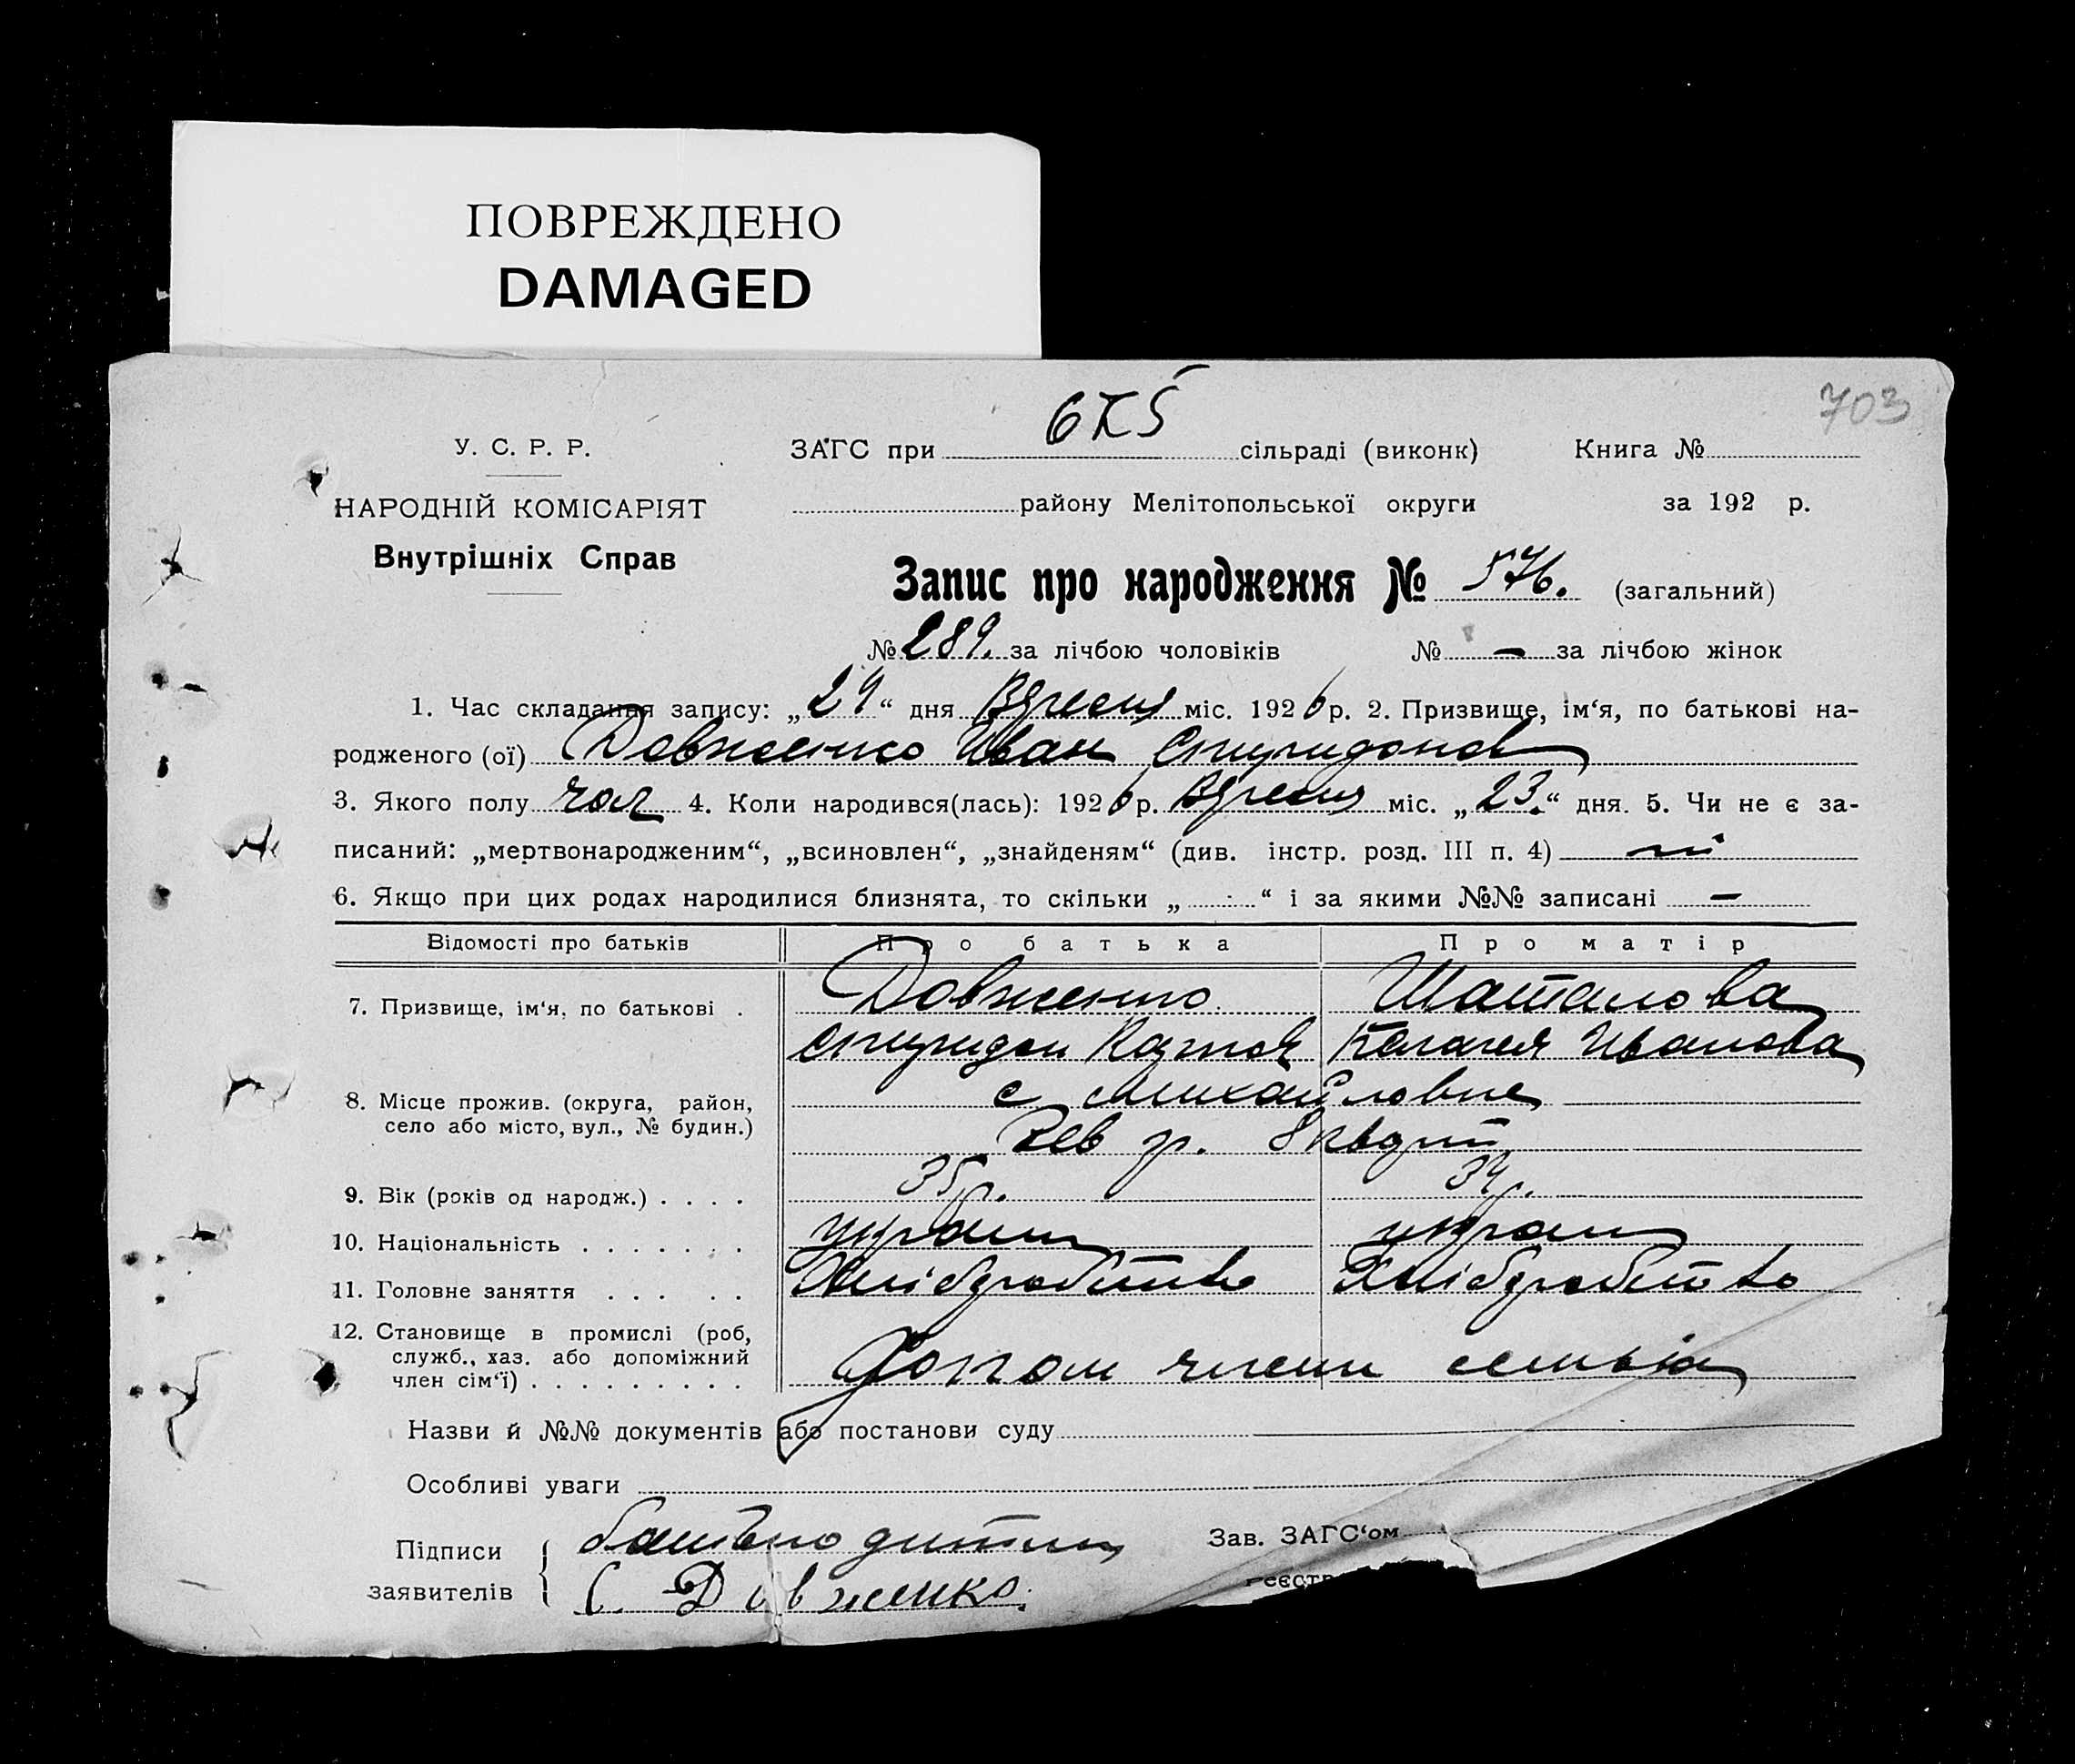 ПОВРЕЖДЕНО
DAMAGED
703
У. С. Р. Р.
НАРОДНІЙ КОМІСАРІЯТ
Внутрішніх Справ
ЗАГС при сільраді (виконк) Книга №
району Мелітопольської округи за 192 р.
Запис про народження № 576. (загальний)
№ 289. за лічбою чоловіків № — за лічбою жінок
1. Час складання запису: „29“ дня Вересня міс. 1926 р. 2. Призвище, ім‘я, по батькові на-
родженого (ої) Довженко Иван Спиридонов
3. Якого полу чол 4. Коли народився(лась): 1926 р. Вересня міс. „23.“ дня. 5. Чи не є за-
писаний: „мертвонародженим“, „всиновлен“, „знайденям“ (див. інстр. розд. III п. 4) ні
6. Якщо при цих родах народилися близнята, то скільки „ - “ і за якими №№ записані —
Відомості про батьків Про батька Про матір
7. Призвище, ім‘я, по батькові . Довженко Шаталова
Спиридон Пелагея Иванова
8. Місце прожив. (округа, район, с Михайловне
село або місто, вул., № будин.) Рев
9. Вік (років од народж.) . . . . 35 р. 34 р.
10. Національність . . . . . . . украин украин
11. Головне заняття . . . . . Хліборобство Хліборобство
12. Становище в промислі (роб,
служб., хаз. або допоміжний
член сім‘ї) . . . . . . . . . Допом члени семьи
Назви й №№ документів або постанови суду
Особливі уваги
Підписи батько дитини Зав. ЗАГС‘ом
заявителів С. Довженко.